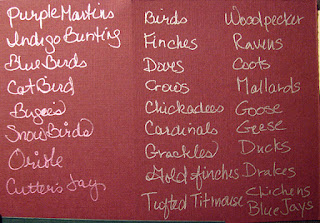 Purple Martins
Indigo Bunting
Blue Birds
Cat Bird
Snow Birds
Oriole
Cutter's Jays
Birds
Finches
Doves
Crows
Chickadees
Cardinals
Grackles
Gold finches
Tufted Titmouse
Woodpecker
Ravens
Coots
Mallards
Goose
Geese
Ducks
Drakes
Chickens
Blue Jays